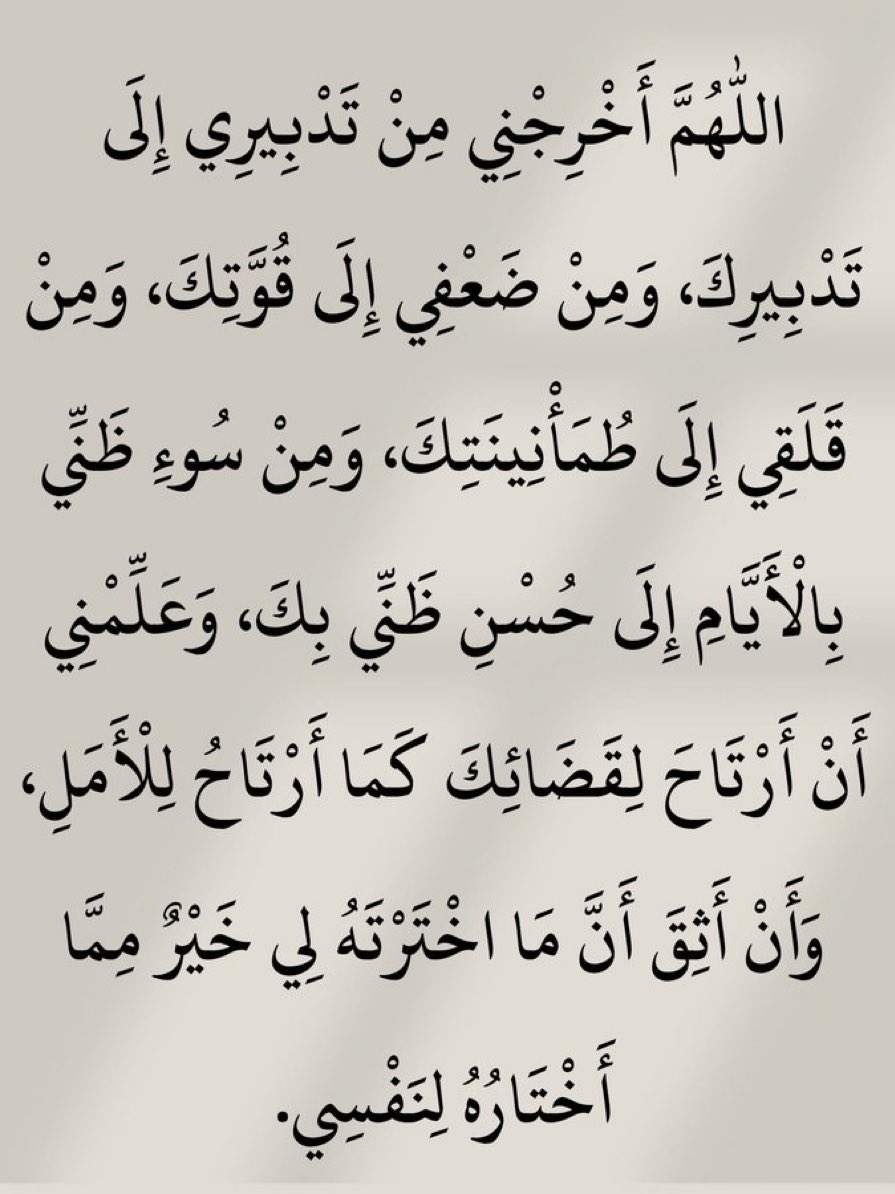 اللّٰهُمَّ أَخْرِجْنِي مِنْ تَدْبِيرِي إِلَى
تَدْبِيرِكَ، وَمِنْ ضَعْفِي إِلَى قُوَّتِكَ، وَمِنْ
قَلَقِي إِلَى طُمَأْنِينَتِكَ، وَمِنْ سُوءِ ظَنِّي
بِالْأَيَّامِ إِلَى حُسْنِ ظَنِّي بِكَ، وَعَلِّمْنِي
أَنْ أَرْتَاحَ لِقَضَائِكَ كَمَا أَرْتَاحُ لِلْأَمَلِ،
وَأَنْ أَثِقَ أَنَّ مَا اخْتَرْتَهُ لِي خَيْرٌ مِمَّا
أَخْتَارُهُ لِنَفْسِي.